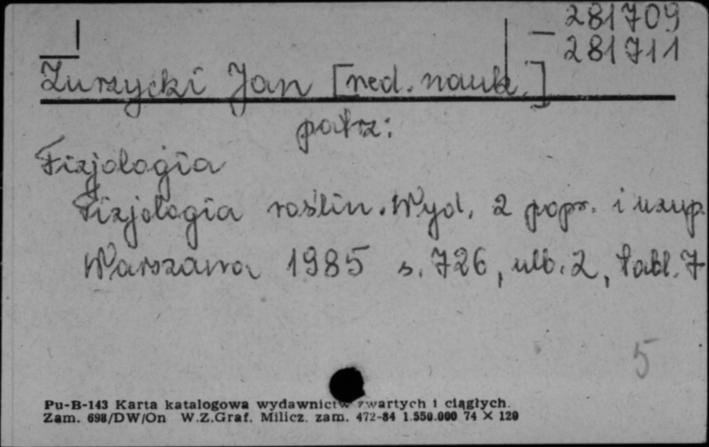 281709
281711
Zurzycki Jan [red. nauk.]
patrz:
Fizjologia
Fizjologia roślin. Wyd. 2 popr. i uzup.
Warszawa 1985 s. 726, ulb. 2, tabl. 7
5
Pu-B-143 Karta katalogowa wydawnictw zwartych i ciągłych.
Zam. 698/DW/On W.Z.Graf. Milicz. zam. 472-84 1.550.000 74 × 120